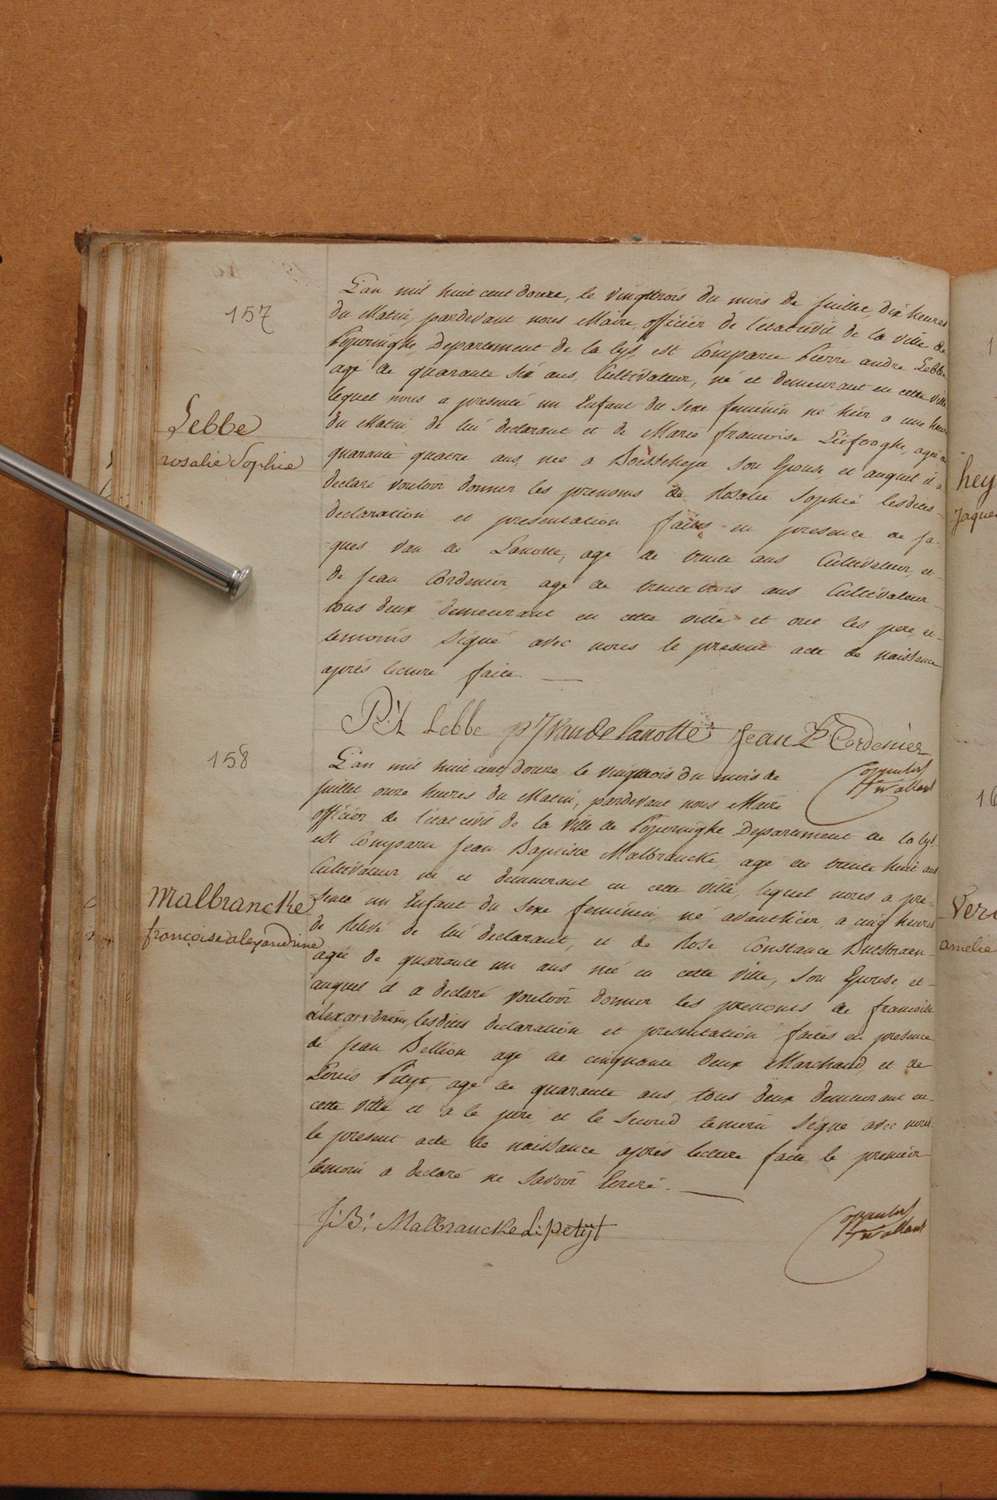 157
Lebbe
rosalie Sophie
L'an mil huit cent douze, le vingttrois du mois de juillet, dix heures
du Matin, pardevant nous Maire, officier de l'etat civil de la ville de
Poperinghe Departement de la lys, est Comparu Pierre andre Lebbe
agé de quarante six ans, Cultivateur, né et demeurant en cette ville
lequel nous a presenté un Enfant du Sexe feminin né hier a une heure
du Matin de lui declarant et de Marie francoise agée de
quarante quatre ans née a Son Epouse et auquel il a
declaré vouloir donner les prenoms de Rosalie Sophie lesdites
declaration et presentation faites en presence de Ja-
ques Van de Lanotte, agé de trente ans Cultivateur, et
de Jean Cordenier agé de trente trois ans Cultivateur
tous deux demeurant en cette ville et ont les pere et
temoins Signé avec nous le present acte de naissance
après lecture faite.
P:A Lebbe p J Van De lanotte Jean Bte Cordenier
158
Malbrancke
françoise alexandrine
L'an mil huit cent douze le vingttrois du mois de
juillet onze heures du Matin, pardevant nous Maire
officier de l'etat civil de la Ville de Poperinghe Departement de la lys
est Comparu Jean Baptiste Malbrancke agé de trente huit ans
Cultivateur né et demeurant en cette ville lequel nous a pre-
senté un Enfant du Sexe feminin, né avanthier a cinq heures
de relevé de lui declarant, et de Rose Constance
agée de quarante un ans née en cette Ville, Son Epouse et
auquel il a declaré vouloir donner les prenoms de francoise
alexandrine, lesdites declaration et presentation faites en presence
de Jean Dellion agé de cinquante deux Marchand, et de
Louis Petyt, agé de quarante ans, tous deux demeurant en
cette ville et a le pere et le second temoin Signé avec nous
le present acte de naissance après lecture faite le premier
temoin a declaré ne Savoir Ecrire.
J:B: Malbrancke L: petijt